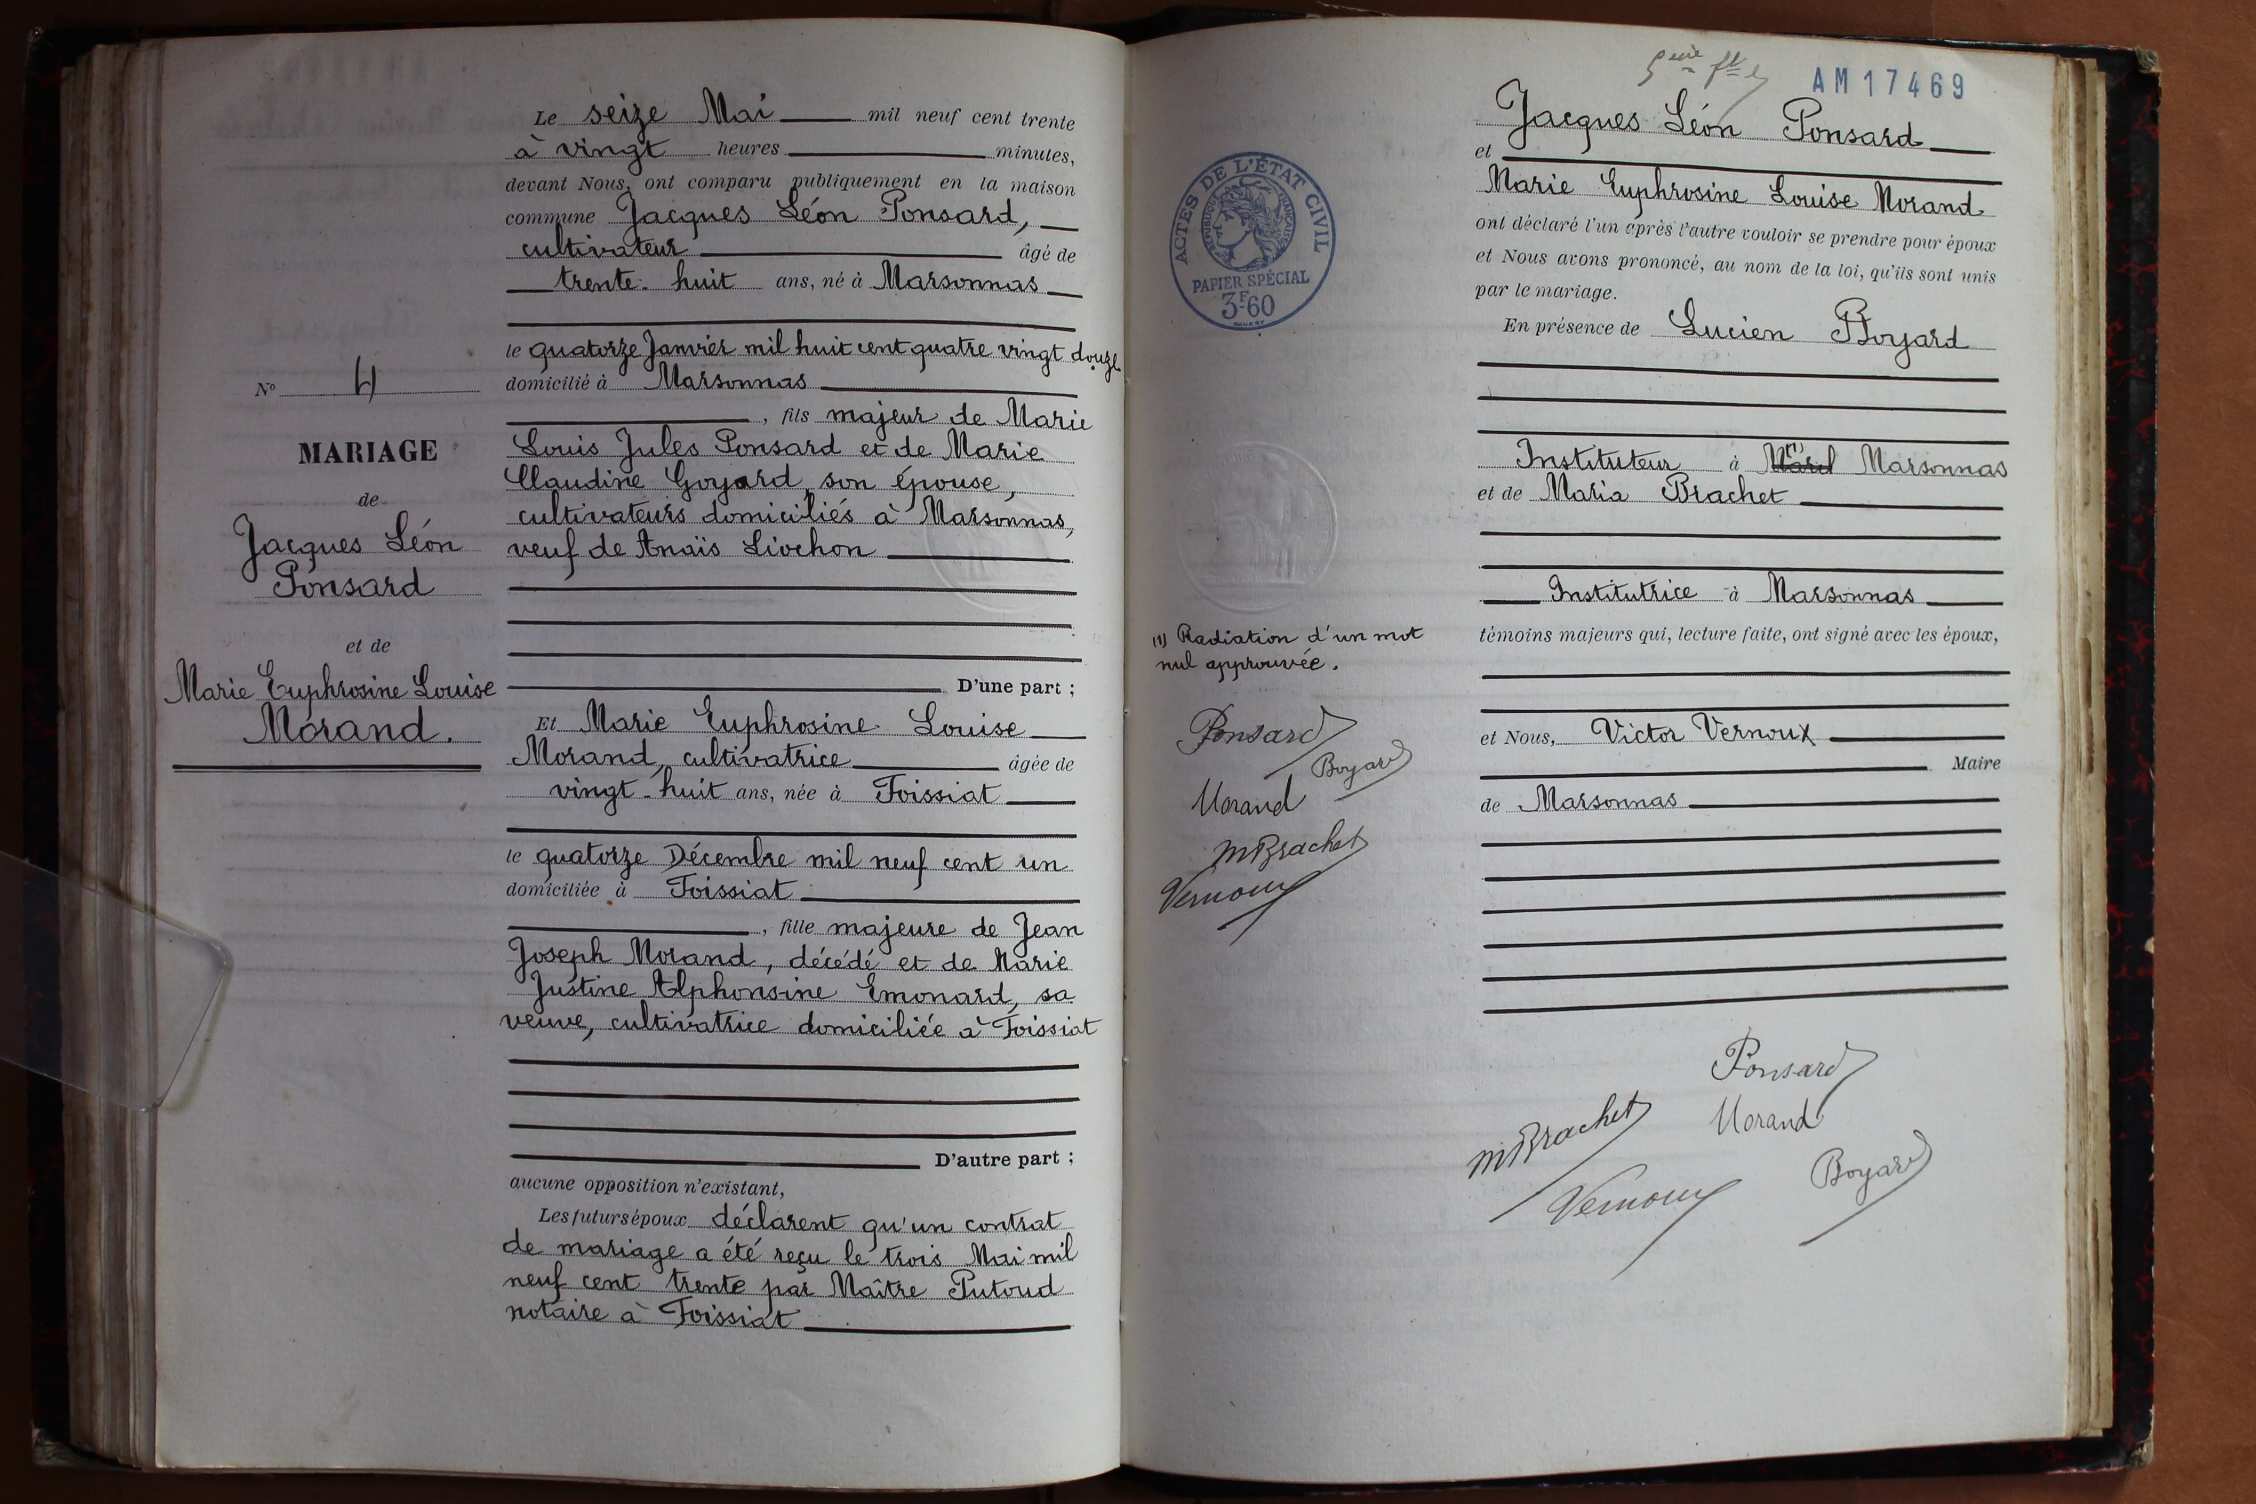 Le seize Mai mil neuf cent trente
à vingt heures minutes,
devant Nous, ont comparu publiquement en la maison
commune Jacques Léon Ponsard,
cultivateur âgé de
trente-huit ans, né à Marsonnas
le quatorze Janvier mil huit cent quatre vingt douze
domicilié à Marsonnas
, fils majeur de Marie
Louis Jules Ponsard et de Marie
Claudine Goyard, son épouse,
cultivateurs domiciliés à Marsonnas,
veuf de Anaïs Livchon
D'une part ;
Et Marie Euphrosine Louise
Morand, cultivatrice âgée de
vingt-huit ans, née à Foissiat
le quatorze Décembre mil neuf cent un
domiciliée à Foissiat
, fille majeure de Jean
Joseph Morand, décédé et de Marie
Justine Alphonsine Emonard, sa
veuve, cultivatrice domiciliée à Foissiat
D'autre part ;
aucune opposition n'existant,
Les futurs époux déclarent qu'un contrat
de mariage a été reçu le trois Mai mil
neuf cent trente par Maître Putoud
notaire à Foissiat
N° 4
MARIAGE
de
Jacques Léon
Ponsard
et de
Marie Euphrosine Louise
Morand.
AM17469
Jacques Léon Ponsard
et
Marie Euphrosine Louise Morand
ont déclaré l'un après l'autre vouloir se prendre pour époux
et Nous avons prononcé, au nom de la loi, qu'ils sont unis
par le mariage.
En présence de Lucien Boyard
Instituteur à (1) Marsonnas
et de Maria Brachet
Institutrice à Marsonnas
témoins majeurs qui, lecture faite, ont signé avec les époux,
et Nous, Victor Vernoux
Maire
de Marsonnas
Ponsard
MBrachet
Morand
Boyard
Vernoux
ACTES DE L'ÉTAT CIVIL
RÉPUBLIQUE FRANÇAISE
PAPIER SPÉCIAL
3F60
(1) Radiation d'un mot
nul approuvée.
Ponsard
Boyard
Morand
MBrachet
Vernoux